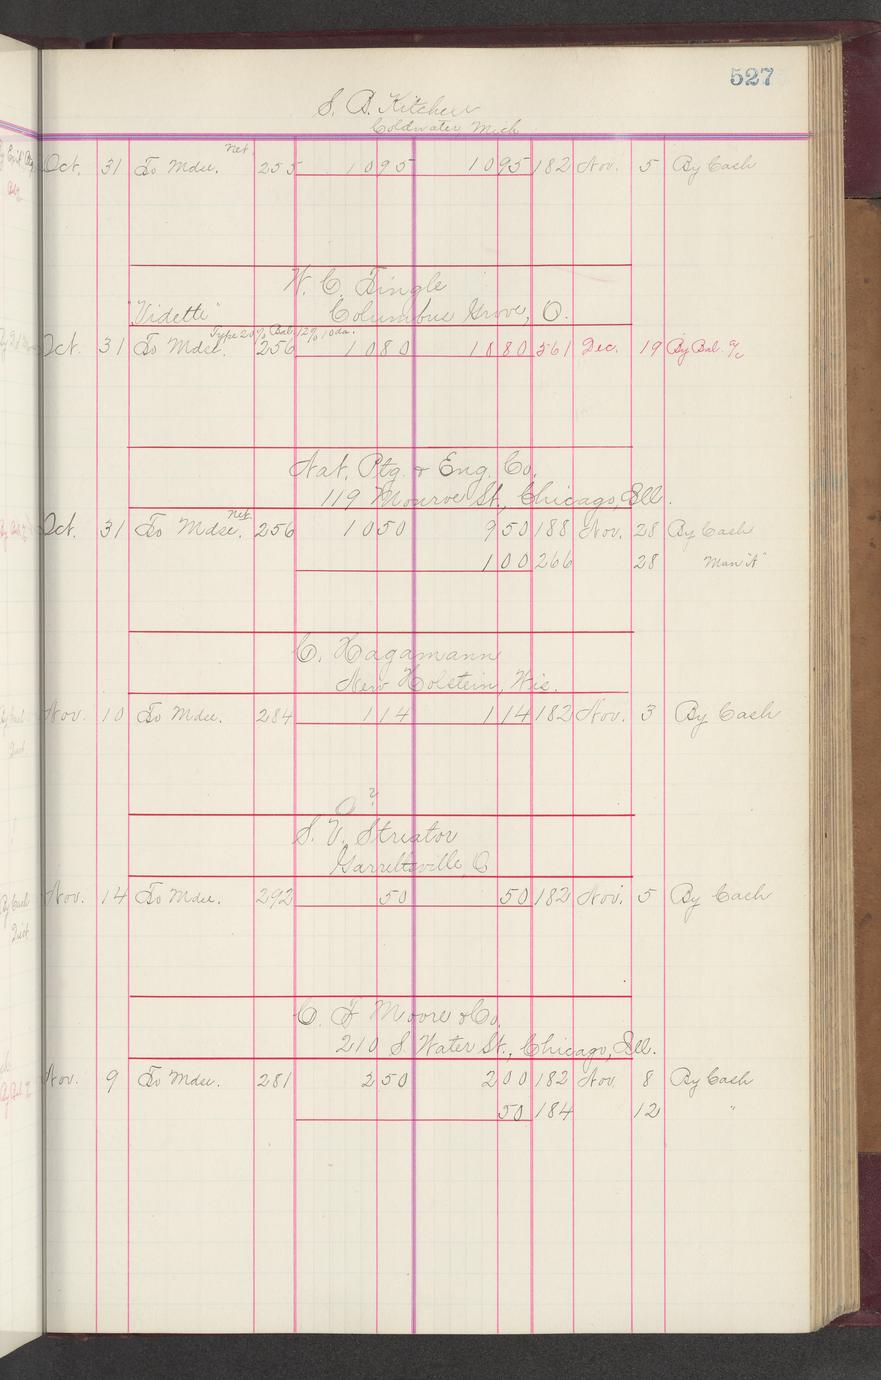 527
S. B. Kitchen
Coldwater, Mich
Oct. 31 To Mdse. net 255 10 95 10 95 182 Nov. 5 By Cash
W. C. Tingle
"Vidette" Columbus Grove, O.
Type 20% Bal. 12% 10 da.
Oct. 31 To Mdse. 256 10 80 10 80 561 Dec. 19 By Bal. a/c
Nat. Ptg. & Eng. Co.
119 Monroe St., Chicago, Ill.
Oct. 31 To Mdse. Net 256 10 50 9 50 188 Nov. 28 By Cash
1 00 266 28 Man "A"
C. Hagamann
New Holstein, Wis.
Nov. 10 To Mdse. 284 1 14 1 14 182 Nov. 3 By Cash
O ?
S. V. Streator
Garrettsville, O
Nov. 14 To Mdse. 292 50 50 182 Nov. 5 By Cash
C. F. Moore & Co.
210 S. Water St., Chicago, Ill.
Nov. 9 To Mdse. 281 2 50 2 00 182 Nov 8 By Cash
50 184 12 "